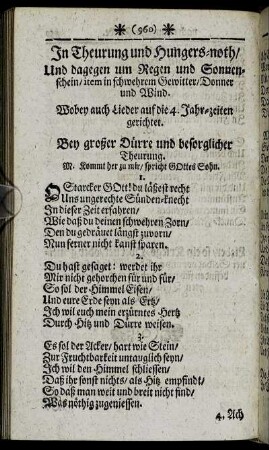 (960)
In Theurung und Hungers-noth/
Und dagegen um Regen und Sonnen-
schein/ item in schwehrem Gewitter/ Donner
und Wind.
Wobey auch Lieder auf die 4. Jahr-zeiten
gerichtet.
Bey großer Dürre und besorglicher
Theurung.
M. Kommt her zu mir/ spricht GOttes Sohn.
1.
O Starcker GOtt! du läßest recht
Uns ungerechte Sünden-knecht
In dieser Zeit erfahren/
Wie daß du deinen schwehren Zorn/
Den du gedräuet längst zuvorn/
Nun ferner nicht kanst sparen.
2.
Du hast gesaget: werdet ihr
Mir nicht gehorchen für und für/
So sol der Himmel Eisen/
Und eure Erde seyn als Ertz/
Ich wil euch mein erzürntes Hertz
Durch Hitz und Dürre weisen.
3.
Es sol der Acker/ hart wie Stein/
Zur Fruchtbarkeit untauglich seyn/
Ich wil den Himmel schliessen/
Daß ihr sonst nichts/ als Hitz empfindt/
So daß man weit und breit nicht find/
Was nöthig zugeniessen.
4. Ach